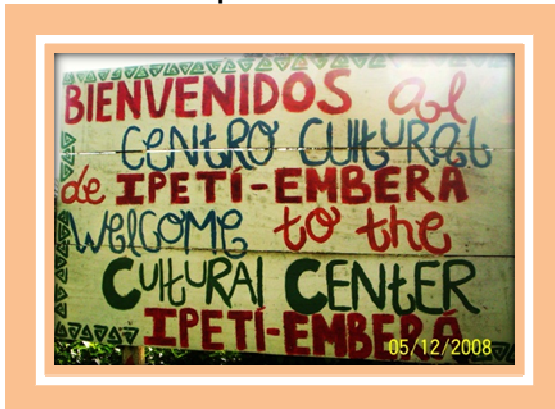 BIENVENIDOS al
CENtRO CUltURal
de IPETÍ-EMBERÁ
WElCOME to the
CUltURAl CENtER
IPETÍ-EMBERÁ
05/12/2008